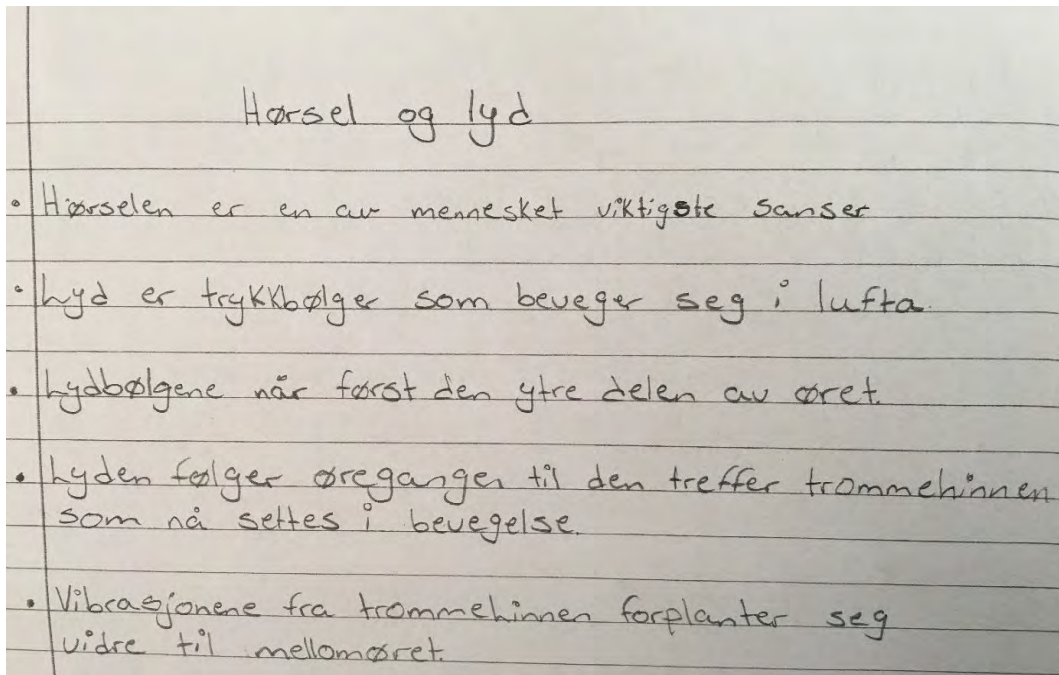 Hørsel og lyd
• Hørselen er en av mennesket viktigste sanser
• Lyd er trykkbølger som beveger seg i lufta.
• Lydbølgene når først den ytre delen av øret.
• Lyden følger øreganger til den treffer trommehinnen
som nå settes i bevegelse.
• Vibrasjonene fra trommehinnen forplanter seg
vidre til mellomøret.